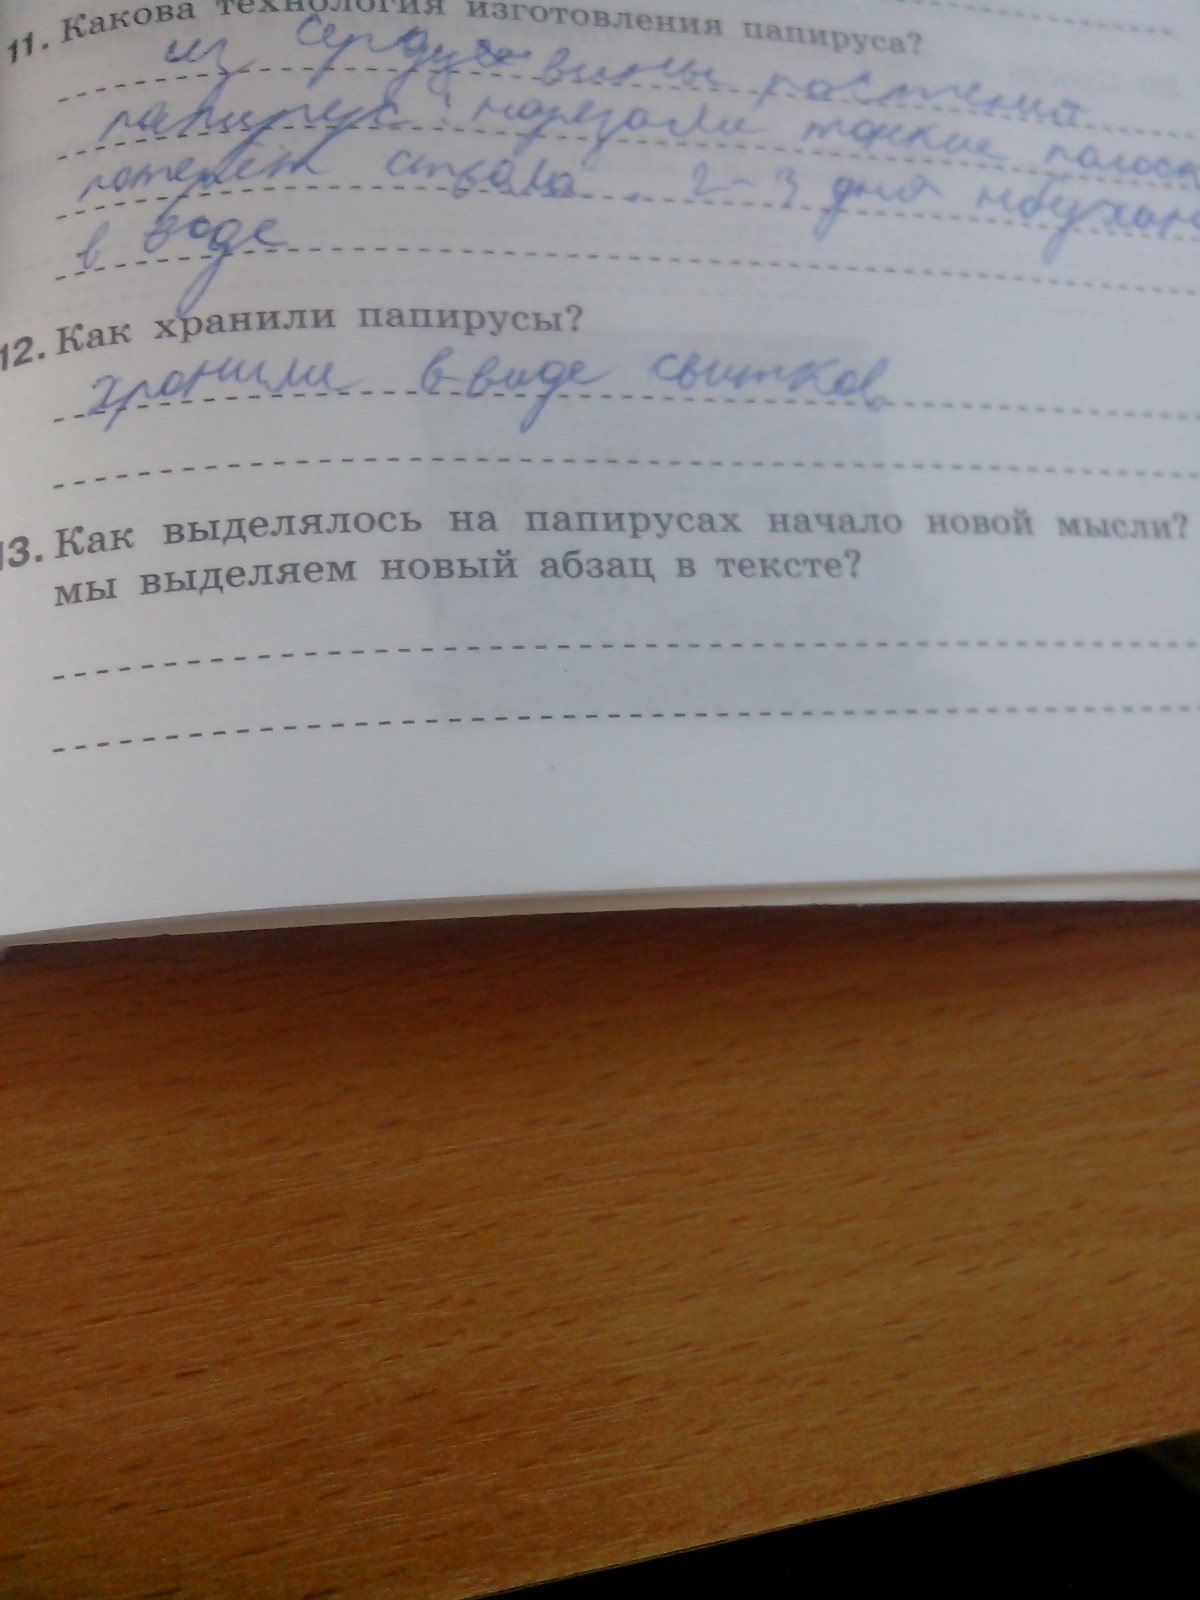 11. Какова технология изготовления папируса?
из сердцевины растения
папирус: нарезали тонкие полоск
поперёк ствола. 2-3 дня нбухан
в воде
12. Как хранили папирусы?
хранили в виде свитков
13. Как выделялось на папирусах начало новой мысли?
мы выделяем новый абзац в тексте?